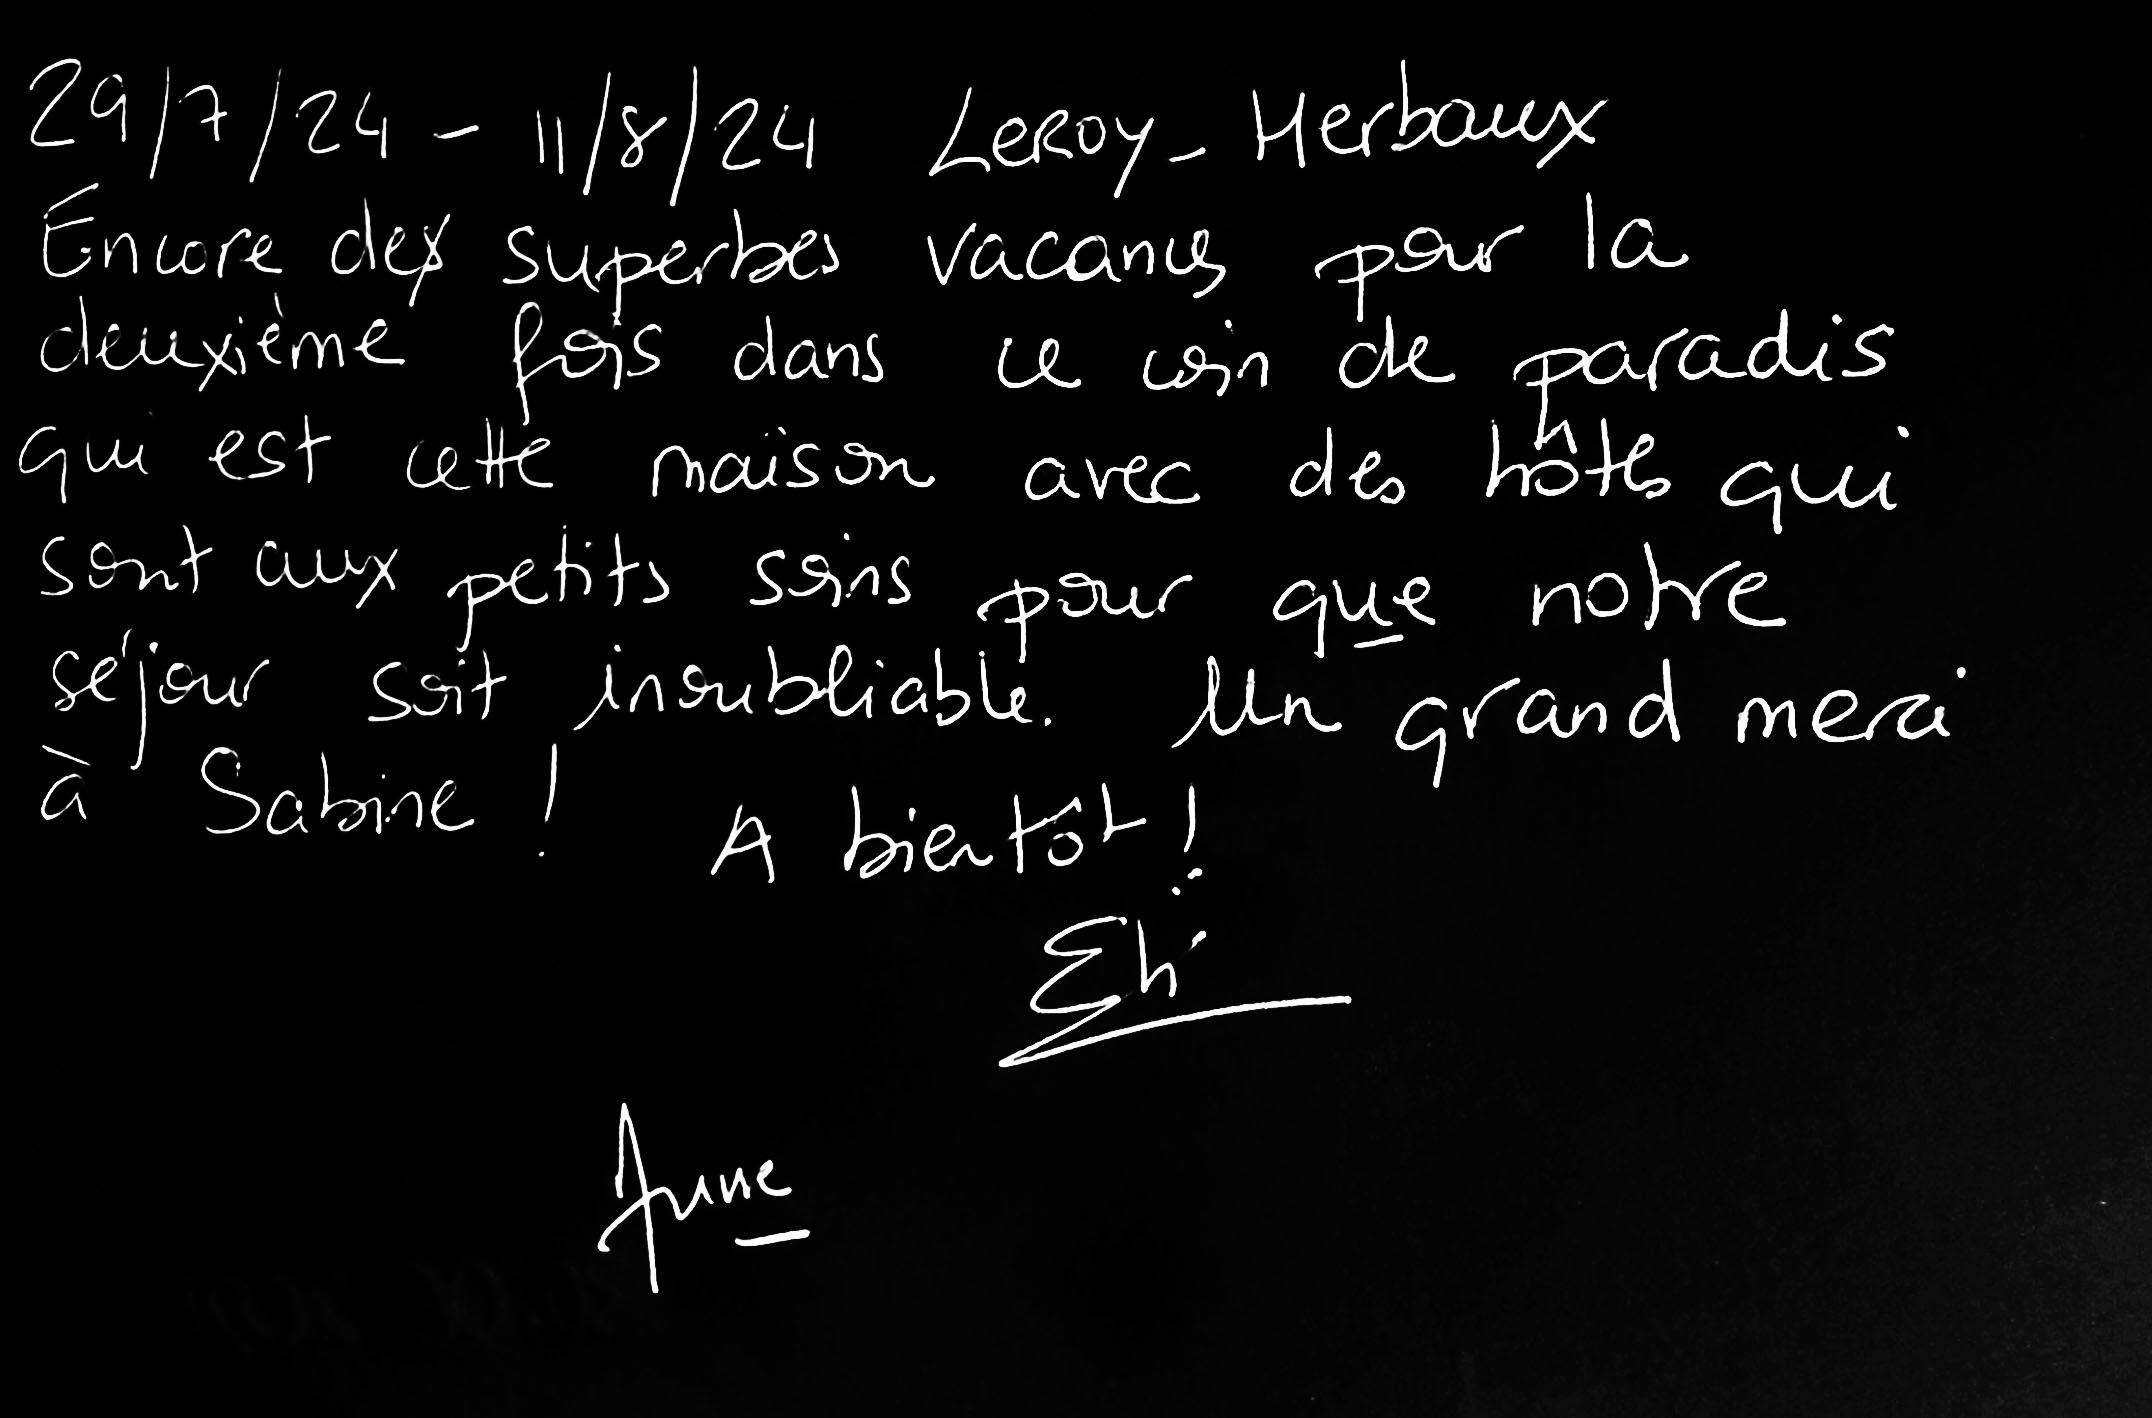 29/7/24 - 11/8/24 Leroy - Herbaux
Encore des superbes vacances pour la
deuxième fois dans ce coin de paradis
qui est cette maison avec des hôtes qui
sont aux petits soins pour que notre
séjour soit inoubliable. Un grand merci
à Sabine !
A bientôt !
Anne